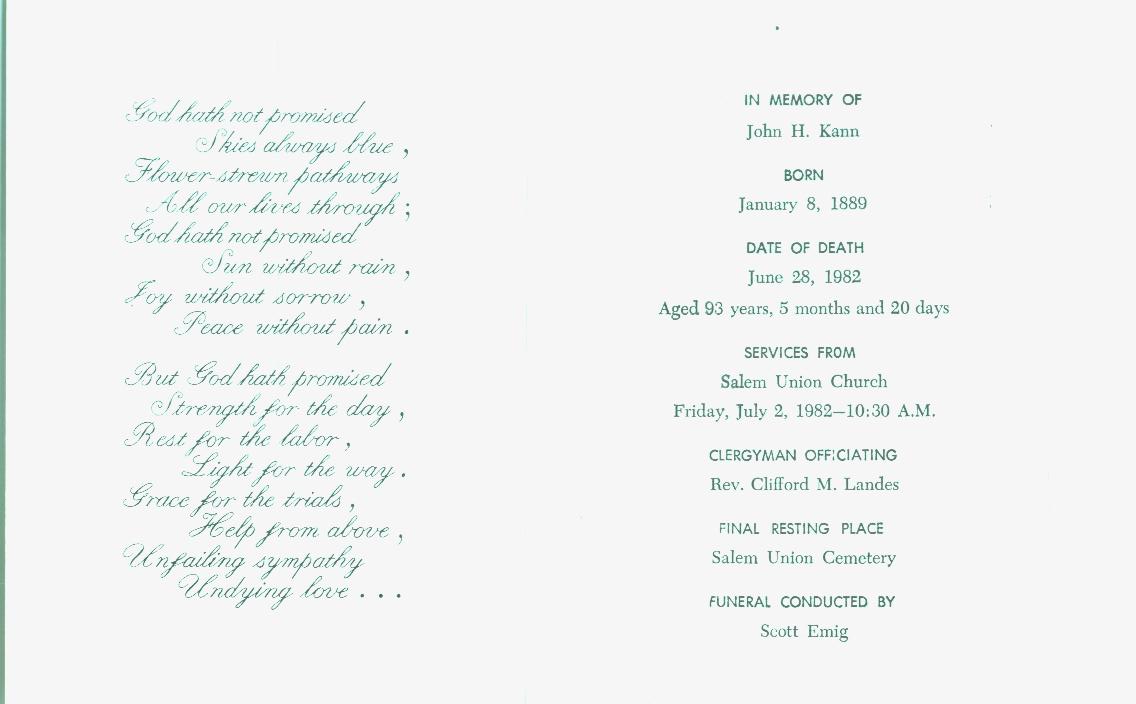 God hath not promised
Skies always blue,
Flower-strewn pathways
All our lives through;
God hath not promised
Sun without rain,
Joy without sorrow,
Peace without pain.
But God hath promised
Strength for the day,
Rest for the labor,
Light for the way.
Grace for the trials,
Help from above,
Unfailing sympathy
Undying love . . .
IN MEMORY OF
John H. Kann
BORN
January 8, 1889
DATE OF DEATH
June 28, 1982
Aged 93 years, 5 months and 20 days
SERVICES FROM
Salem Union Church
Friday, July 2, 1982—10:30 A.M.
CLERGYMAN OFFICIATING
Rev. Clifford M. Landes
FINAL RESTING PLACE
Salem Union Cemetery
FUNERAL CONDUCTED BY
Scott Emig